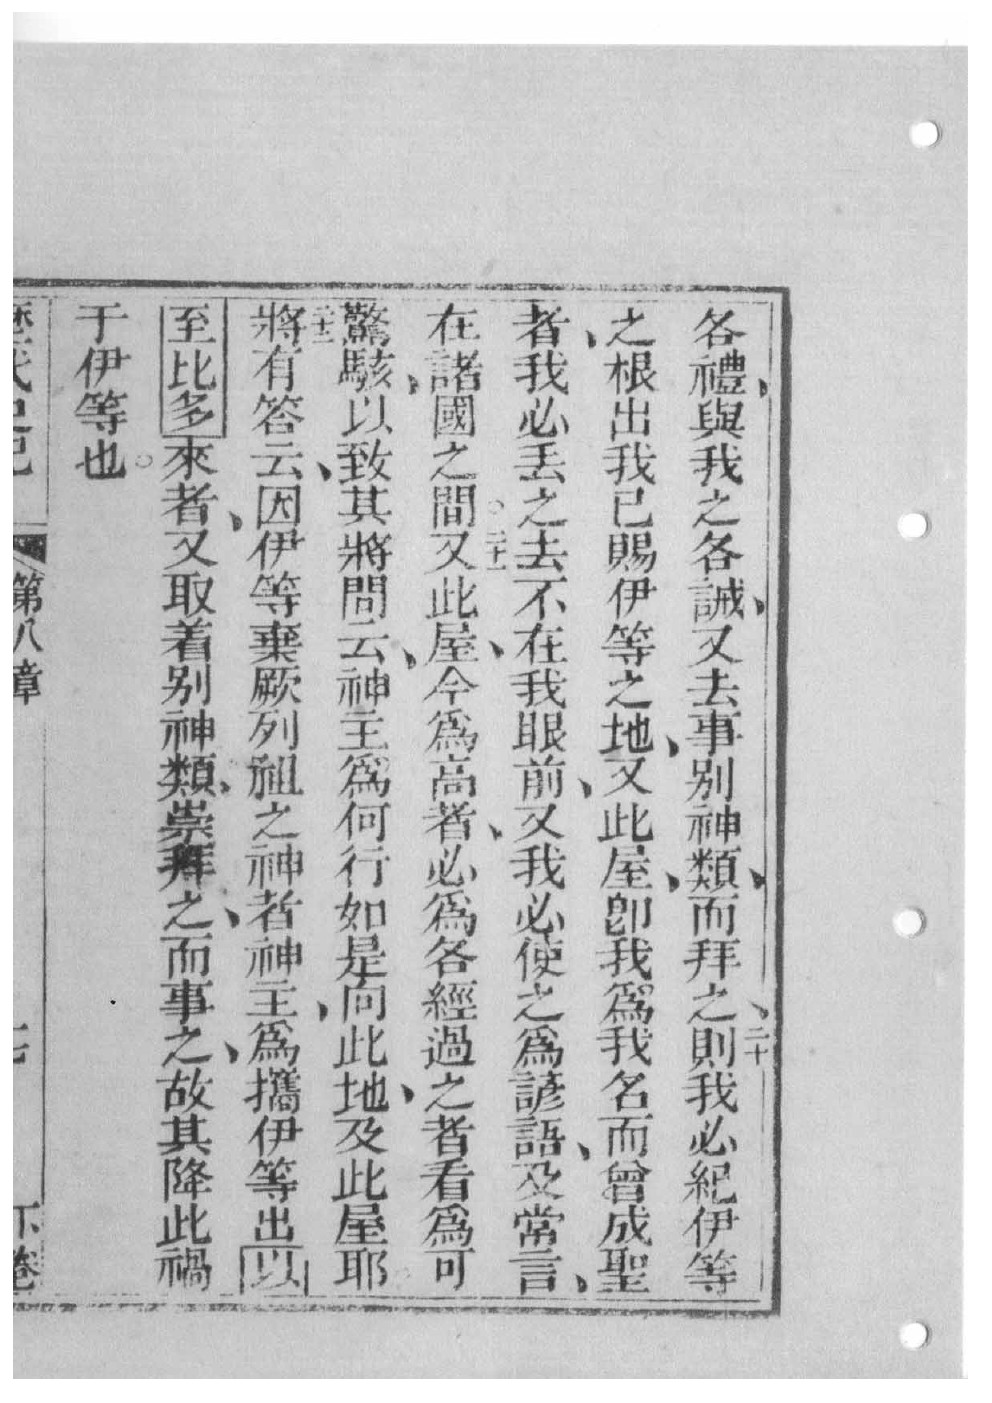 各禮、與我之各誡、又去事別神類、而拜之、二十則我必紀伊等
之根出我已賜伊等之地、又此屋、卽我爲我名而曾成聖
者、我必丢之去不在我眼前、又我必使之爲諺語、及常言、
在諸國之間。二十一又此屋、今爲高者、必爲各經過之者看爲可
驚駭、以致其將問云、神主爲何行如是向此地、及此屋耶
二十二將有答云、因伊等棄厥列祖之神者神主、爲攜伊等出以
至比多來者、又取着別神類、崇拜之、而事之、故其降此禍
于伊等也。
歷代史記 第八章 七 下卷